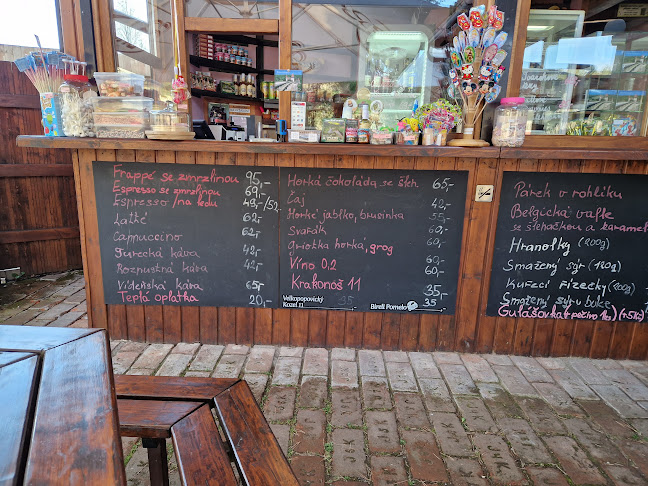 Frappé se zmrzlinou 95,-
Espresso se zmrzlinou 69,-
Espresso /na ledu 49,-/52,-
Latté 62,-
Cappuccino 62,-
Turecká káva 42,-
Rozpustná káva 42,-
Vídeňská káva 65,-
Teplá oplatka 20,-
Horká čokoláda se šleh. 65,-
Čaj 40,-
Horké jablko, brusinka 55,-
Svařák 60,-
griotka horká, grog 60,-
Víno 0,2 60,-
Krakonoš 11 35,-
Velkopopovický
Kozel 11 35,-
Birell Pomelo 35,-
Párek v rohlíku
Belgická vafle
se šlehačkou a karamel
Hranolky (200g)
Smažený sýr (120g)
Kuřecí Fizečky (200g)
Smažený sýr v bulce
Gulášovka (+ pečivo 1ks) (+5Kč)